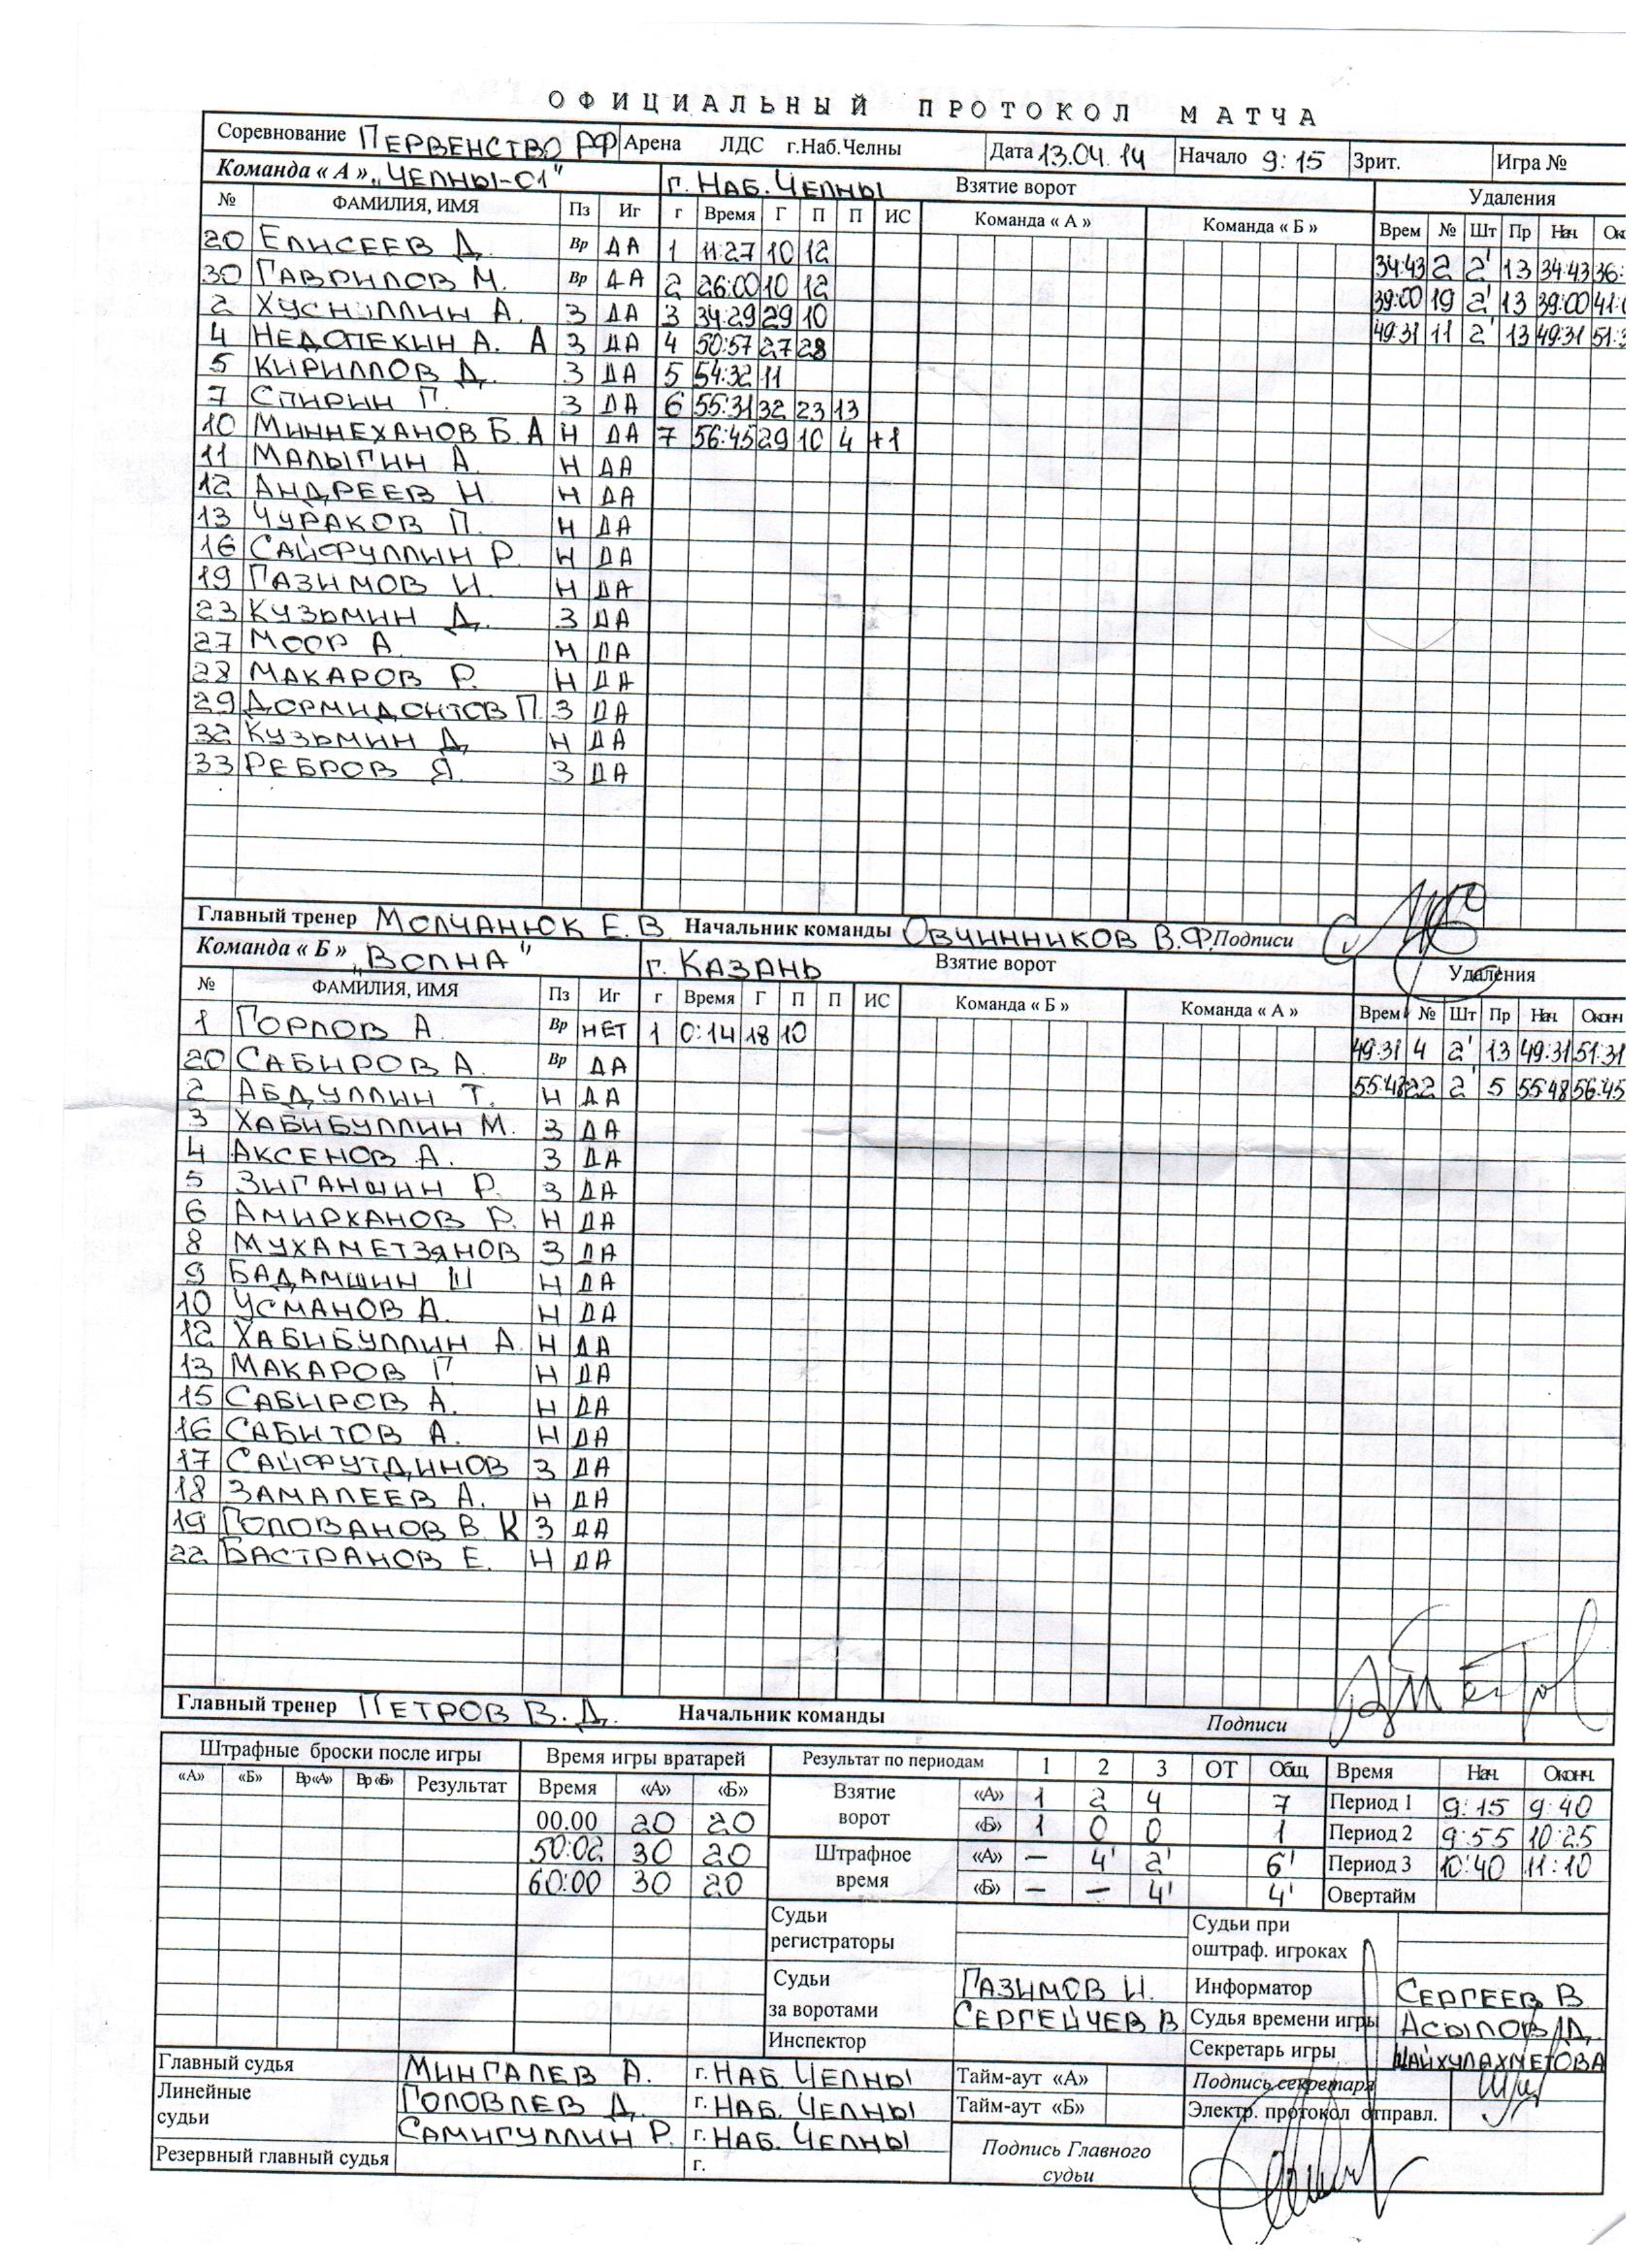 ОФИЦИАЛЬНЫЙ ПРОТОКОЛ МАТЧА
Соревнование ПЕРВЕНСТВО РФ Арена ЛДС г.Наб.Челны Дата 13.04.14 Начало 9:15 Зрит. Игра №
Команда « А » „ЧЕЛНЫ-01" г. НАБ. ЧЕЛНЫ Взятие ворот Удаления
№ ФАМИЛИЯ, ИМЯ Пз Иг г Время Г П П ИС Команда « А » Команда « Б » Врем № Шт Пр Нач.
20 ЕЛИСЕЕВ Д. Вр ДА 1 11:27 10 12 34:43 2 2' 13 34:43 36:
30 ГАВРИЛОВ М. Вр ДА 2 26:00 10 12 39:00 19 2' 13 39:00 41:0
2 ХУСНУЛЛИН А. З ДА 3 34:29 29 10 49:31 11 2' 13 49:31 51:3
4 НЕДОПЕКИН А. А З ДА 4 50:57 27 28
5 КИРИЛЛОВ Д. З ДА 5 54:32 11
7 СПИРИН Г. З ДА 6 55:31 32 23 13
10 МИННЕХАНОВ Б. А Н ДА 7 56:45 29 10 4 +1
11 МАЛЫГИН А. Н ДА
12 АНДРЕЕВ Н. Н ДА
13 ЧУРАКОВ П. Н ДА
16 САЙФУЛЛИН Р. Н ДА
19 ГАЗИМОВ И. Н ДА
23 КУЗЬМИН Д. З ДА
27 МООР А. Н ДА
28 МАКАРОВ Р. Н ДА
29 ДОРМИДОНТОВ П. З ДА
32 КУЗЬМИН Д. Н ДА
33 РЕБРОВ Я. З ДА
Главный тренер МОЛЧАНЮК Е. В. Начальник команды ОВЧИННИКОВ В.Ф. Подписи
Команда « Б » „ВОЛНА" г. КАЗАНЬ Взятие ворот Удаления
№ ФАМИЛИЯ, ИМЯ Пз Иг г Время Г П П ИС Команда « Б » Команда « А » Врем № Шт Пр Нач. Оконч
1 ГОРЛОВ А. Вр НЕТ 1 0:14 18 10 49:31 4 2' 13 49:31 51:31
20 САБИРОВ А. Вр ДА 55:48 22 2' 5 55:48 56:45
2 АБДУЛЛИН Т. Н ДА
3 ХАБИБУЛЛИН М. З ДА
4 АКСЕНОВ А. З ДА
5 ЗИГАНШИН Р. З ДА
6 АМИРХАНОВ Р. Н ДА
8 МУХАМЕТЗЯНОВ З ДА
9 БАДАМШИН Ш Н ДА
10 УСМАНОВ А. Н ДА
12 ХАБИБУЛЛИН А. Н ДА
13 МАКАРОВ Г. Н ДА
15 САБИРОВ А. Н ДА
16 САБИТОВ А. Н ДА
17 САЙФУТДИНОВ З ДА
18 ЗАМАЛЕЕВ А. Н ДА
19 ГОЛОВАНОВ В. К З ДА
22 БАСТРАНОВ Е. Н ДА
Главный тренер ПЕТРОВ В. Д. Начальник команды Подписи
Штрафные броски после игры Время игры вратарей Результат по периодам 1 2 3 ОТ Общ. Время Нач. Оконч.
«А» «Б» Вр «А» Вр «Б» Результат Время «А» «Б» Взятие ворот «А» 1 2 4 7 Период 1 9:15 9:40
00.00 20 20 «Б» 1 0 0 1 Период 2 9:55 10:25
50:02 30 20 Штрафное время «А» – 4' 2' 6' Период 3 10:40 11:10
60:00 30 20 «Б» – – 4' 4' Овертайм
Судьи регистраторы Судьи при оштраф. игроках
Судьи за воротами ГАЗИМОВ И. Информатор СЕРГЕЕВ В
СЕРГЕЙЧЕВ В Судья времени игры АСЫЛОВ Д.
Инспектор Секретарь игры ШАЙХУЛАХМЕТОВА
Главный судья МИНГАЛЕВ А. г. НАБ. ЧЕЛНЫ Тайм-аут «А» Подпись секретаря
Линейные судьи ГОЛОВЛЕВ Д. г. НАБ. ЧЕЛНЫ Тайм-аут «Б» Электр. протокол отправл.
САМИГУЛЛИН Р. г. НАБ. ЧЕЛНЫ Подпись Главного судьи
Резервный главный судья г.